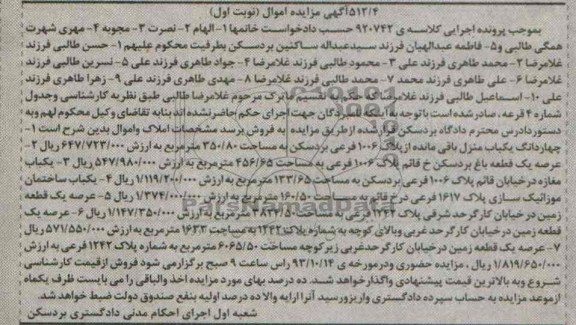 ۵۱۲/۴آگهی مزایده اموال (نوبت اول)
بموجب پرونده اجرایی کلاسه ی ۹۲۰۷۴۲ حسب دادخواست خانمها ۱- الهام ۲- نصرت ۳- مجوبه ۴- مهری شهرت
همگی طالبی و۵- فاطمه عبدالهیان فرزند سیدعبداله ساکنین بردسکن بطرفیت محکوم علیهم ۱- حسن طالبی فرزند
غلامرضا ۲- محمد طاهری فرزند علی ۳- محمود طالبی فرزند غلامرضا ۴- جواد طاهری فرزند علی ۵- نسرین طالبی فرزند
غلامرضا ۶- علی طاهری فرزند محمد ۷- محمد طالبی فرزند غلامرضا ۸- مهدی طاهری فرزند علی ۹- زهرا طاهری فرزند
علی ۱۰- اسماعیل طالبی فرزند غلامرضا، حکم به تقسیم ماترک مرحوم غلامرضا طالبی طبق نظریه کارشناسی وجدول
شماره ۴ قرعه، صادرشده است باتوجه به اینکه نامبردگان جهت اجرای حکم حاضرنشده اند بنابه تقاضای وکیل محکوم لهم وبه
دستوردادرس محترم دادگاه بردسکن قرارشده ازطریق مزایده به فروش برسد مشخصات املاک واموال بدین شرح است ۱-
چهاردانگ یکباب منزل باقی مانده ازپلاک ۱۰۰۶ فرعی بردسکن به مساحت ۳۵۰/۸۰ مترمربع به ارزش ۶۴۷/۷۲۳/۰۰۰ ریال ۲-
عرصه یک قطعه باغ بردسکن خ قائم پلاک ۱۰۰۶ فرعی به مساحت ۴۵۶/۶۵ مترمربع به ارزش ۵۴۷/۹۸۰/۰۰۰ ریال ۳- یکباب
مغازه درخیابان قائم پلاک ۱۰۰۶ فرعی بردسکن به مساحت ۱۳۳/۶۵ مترمربع به ارزش ۱/۱۱۹/۲۰۰/۰۰۰ ریال ۴- یکباب ساختمان
موزائیک سازی پلاک ۱۶۱۷ فرعی درخ قائم به مساحت ۱۶۰/۵۰ مترمربع به ارزش ۱/۳۷۴/۰۰۰/۰۰۰ ریال ۵- عرصه یک قطعه
زمین درخیابان کارگر حد شرقی پلاک ۱۲۴۲ فرعی به مساحت ۳۸۲۴/۵۰ مترمربع به ارزش ۱/۱۴۷/۳۵۰/۰۰۰ ریال ۶- عرصه یک
قطعه زمین درخیابان کارگر حد غربی وبالای کوچه به شماره پلاک ۱۲۴۲ به مساحت ۱۶۳۳ مترمربع به ارزش ۵۷۱/۵۵۰/۰۰۰ ریال
۷- عرصه یک قطعه زمین درخیابان کارگرحدغربی زیرکوچه مساحت ۶۰۶۵/۵۰ مترمربع به شماره پلاک ۱۲۴۲ فرعی به ارزش
۱/۸۱۹/۶۵۰/۰۰۰ ریال، مزایده حضوری ودرمورخه ی ۹۳/۱۰/۱۴ راس ساعت ۹ صبح برگزارمی شود فروش ازقیمت کارشناسی
شروع وبه بالاترین قیمت پیشنهادی واگذارخواهد شد. ده درصد بهای مورد مزایده اخذ والباقی را می بایست ظرف یکماه
ازموعد مزایده به حساب سپرده دادگستری واریزورسید آنرا ارایه والا ده درصد اولیه بنفع صندوق دولت ضبط خواهد شد.
شعبه اول اجرای احکام مدنی دادگستری بردسکن